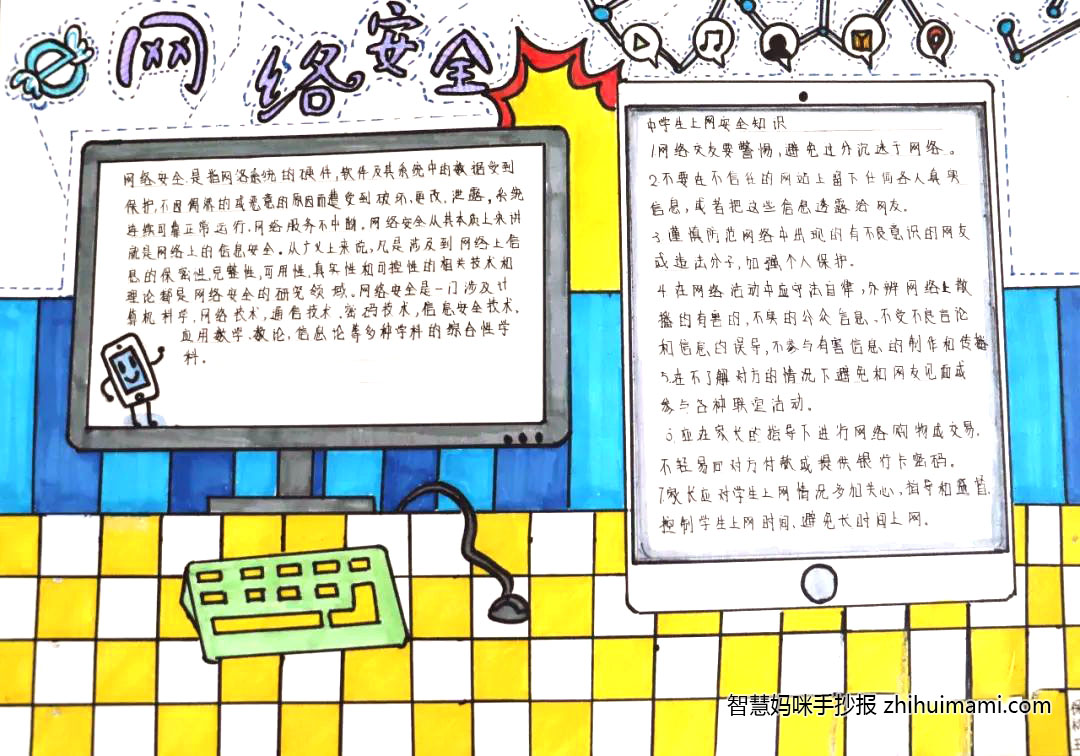 网络安全
网络安全是指网络系统的硬件,软件及其系统中的数据受到
保护,不因偶然的或恶意的原因而遭受到破坏,更改,泄露,系统
连续可靠正常运行,网络服务不中断。网络安全从其本质上来讲
就是网络上的信息安全。从广义上来说,凡是涉及到网络上信
息的保密性,完整性,可用性,真实性和可控性的相关技术和
理论都是网络安全的研究领域。网络安全是一门涉及计
算机科学,网络技术,通信技术,密码技术,信息安全技术,
应用数学,数论,信息论等多种学科的综合性学
科。
中学生上网安全知识
1网络交友要警惕,避免过分沉迷于网络。
2不要在不信任的网站上留下任何个人真实
信息,或者把这些信息透露给网友。
3谨慎防范网络中出现的有不良意识的网友
或违法分子,加强个人保护。
4在网络活动中应守法自律,分辨网络上散
播的有害的,不实的公众信息、不受不良言论
和信息的误导,不参与有害信息的制作和传播
5.在不了解对方的情况下避免和网友见面或
参与各种联谊活动。
6.应在家长的指导下进行网络购物或交易,
不轻易向对方付款或提供银行卡密码。
7家长应对学生上网情况多加关心,指导和监督,
控制学生上网时间、避免长时间上网。
智慧妈咪手抄报 zhihuimami.com